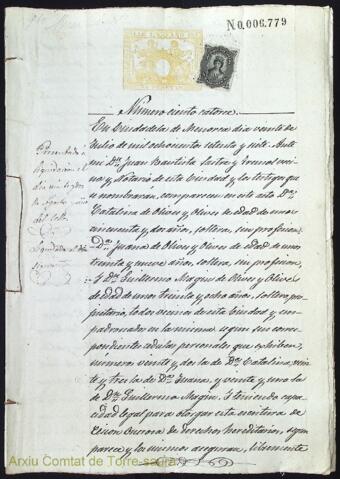 N0,006.779
Numero ciento catorce.
En Ciudadela de Menorca dia veinte de
Julio de mil ochocientos setenta y siete. Ante
mi Dn. Juan Bautista
y Notario de esta Ciudad y los testigos que
se nombrarán, comparecen en este acto Da.
Catalina de Olives y Olives de edad de unos
cincuenta y dos años, soltera, sin profesion.
Da. Juana de Olives y Olives de edad de unos
treinta y nueve años, soltera, sin profesion,
Y Dn. Guillermo Magin de Olives y Olives
de edad de unos treinta y ocho años, soltero, pro-
pietario, todos vecinos de esta Ciudad y em-
padronados en la misma segun sus corres-
pondientes cedulas personales que exhiben,
números veinte y dos la de Da. Catalina, vein-
te y tres la de Da. Juana, y veinte y uno la
de Dn. Guillermo Magin. Y teniendo capa-
cidad legal para otorgar esta escritura de
Cesion de derechos hereditarios, segun
parece y los mismos aseguran, libremente
Arxiu Comtat de Torre-saura